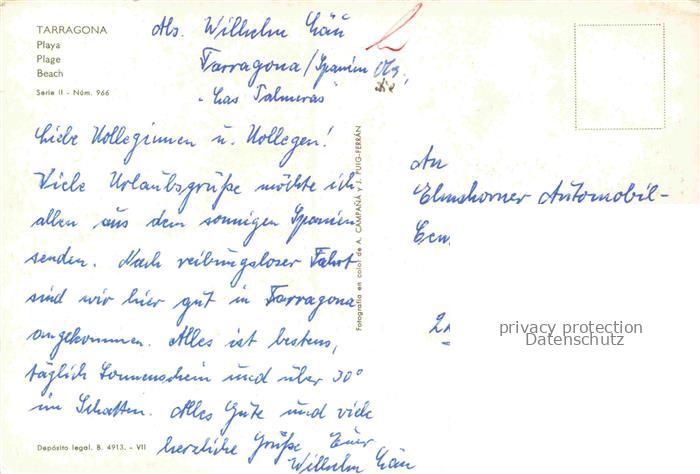 TARRAGONA
Playa
Plage
Beach
Serie II - Núm. 966
Abs. Wilhelm
Tarragona/Spanien
"Las Palmeras"
Liebe Kolleginnen u. Kollegen!
Viele Urlaubsgrüße möchte ich
allen aus dem sonnigen Spanien
senden. Nach reibungsloser Fahrt
sind wir hier gut in Tarragona
angekommen. Alles ist bestens,
täglich Sonnenschein und über 30°
im Schatten. Alles Gute und viele
herzliche Grüße Euer
Wilhelm
Depósito legal. B. 4913. - VII
Fotografía en color de A. CAMPAÑÁ Y J. PUIG-FERRÁN
An
Elmshorner Automobil-
Cen
2
privacy protection
Datenschutz